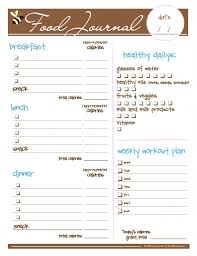 Food Journal
date
/ /
breakfast
(approximate)
calories
total calories
snack
lunch
(approximate)
calories
total calories
snack
dinner
(approximate)
calories
total calories
snack
healthy dailys:
glasses of water
healthy meals
fruits & veggies
milk and milk products
vitamin
weekly workout plan
mon
tue
wed
thu
fri
sat
sun
Today's calorie
grand total